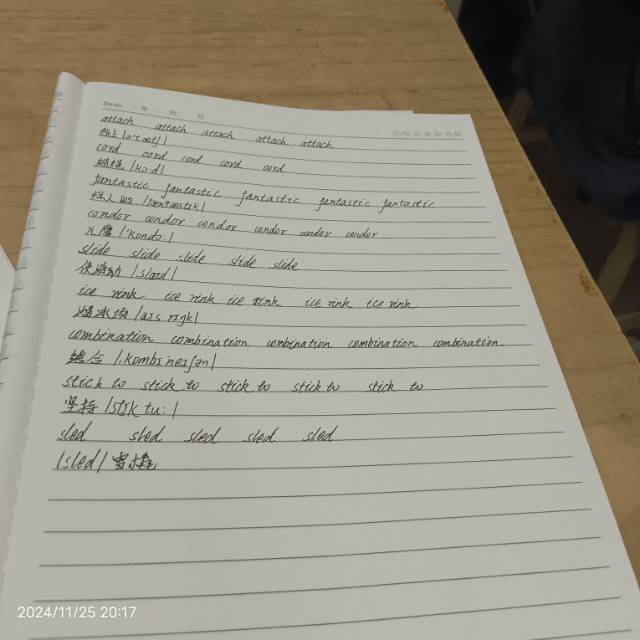 Date:
attach attach attach attach attach
贴上 /ə'tætʃ/
cord cord cord cord cord
/kɔ:d/
fantastic fantastic fantastic fantastic fantastic
/fæn'tæstik/
condor condor condor condor condor condor
兀鹰 /'kɒndɔ:/
slide slide slide slide slide
使滑动 /slaɪd/
ice rink ice rink ice rink ice rink ice rink
溜冰场 /aɪs rɪŋk/
combination combination combination combination combination.
结合 /ˌkɒmbɪneɪʃən/
stick to stick to stick to stick to stick to
坚持 /stɪk tu:/
sled sled sled sled sled
/sled/ 雪橇
2024/11/25 20:17